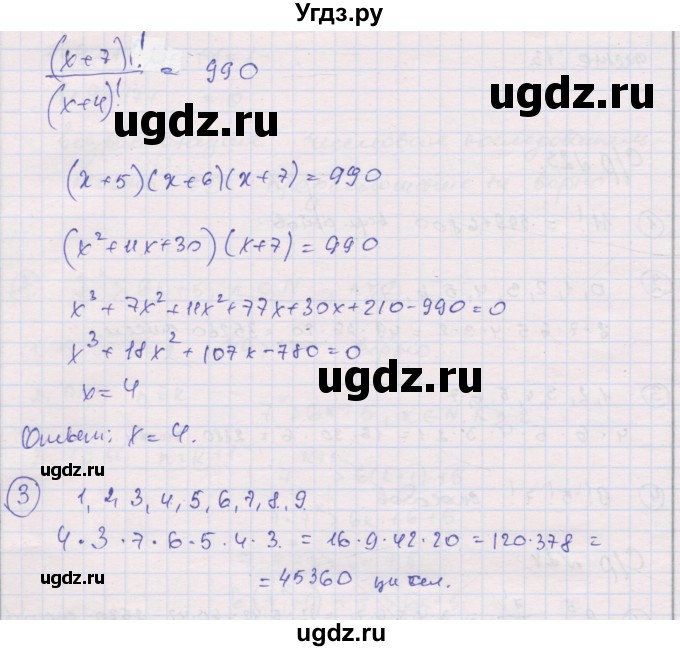 Угдз.ру
(x+7)!
/(x+4)! = 990
ugdz.ru
(x+5)(x+6)(x+7)=990
(x²+11x+30)(x+7)=990
x³+7x²+11x²+77x+30x+210-990=0
x³+18x²+107x-780=0
ugdz.ru
x=4
Ответ: x=4.
ugdz.ru
③ 1, 2, 3, 4, 5, 6, 7, 8, 9.
4·3·7·6·5·4·3 = 16·9·42·20 = 120·378 =
ugdz.ru
= 45360
ugdz.ru
ugdz.ru
ugdz.ru